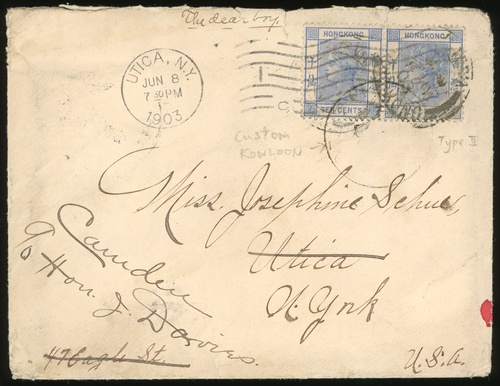 The dear boy
HONGKONG HONGKONG
TEN CENTS
UTICA, N.Y.
JUN 8
7 30 PM
1903
Custom
KOWLOON
Type II
Miss. Josephine
Utica
N. York
Camden
c/o Hon. J. Davies.
47 Eagle St.
U.S.A.